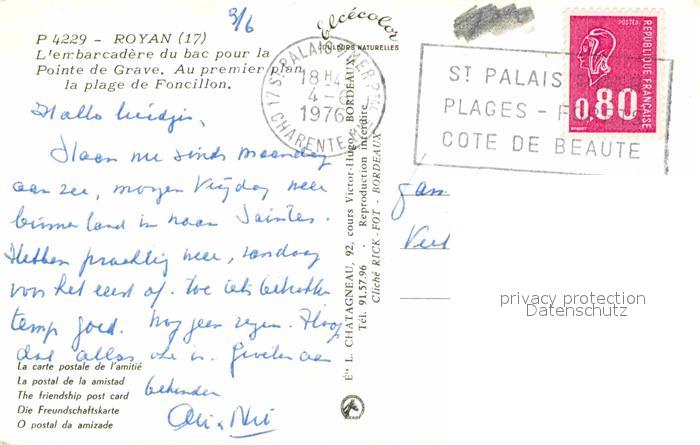 3/6
P 4229 - ROYAN (17)
L'embarcadère du bac pour la
Pointe de Grave. Au premier plan,
la plage de Foncillon.
Elcécolor
COULEURS NATURELLES
17 ST PALAIS S/MER
18H4
4-
1976
CHARENTE
ST PALAIS
PLAGES - F
COTE DE BEAUTE
POSTES
REPUBLIQUE FRANÇAISE
0,80
Hallo
sinds maandag
aan zee, morgen Vrijdag weer
binnenland in naar Saintes.
Hebben prachtig weer, vandaag
voor het eerst af. toe iets
temp goed. Nog geen regen. Hoop
dat alles is. Groeten aan
La carte postale de l'amitié
La postal de la amistad
The friendship post card
Die Freundschaftskarte
O postal da amizade
Ets L. CHATAGNEAU, 92, cours Victor-Hugo - BORDEAUX
Tél. 91.57.96 - Reproduction Interdite
Cliché RICK-FOT - BORDEAUX
privacy protection
Datenschutz